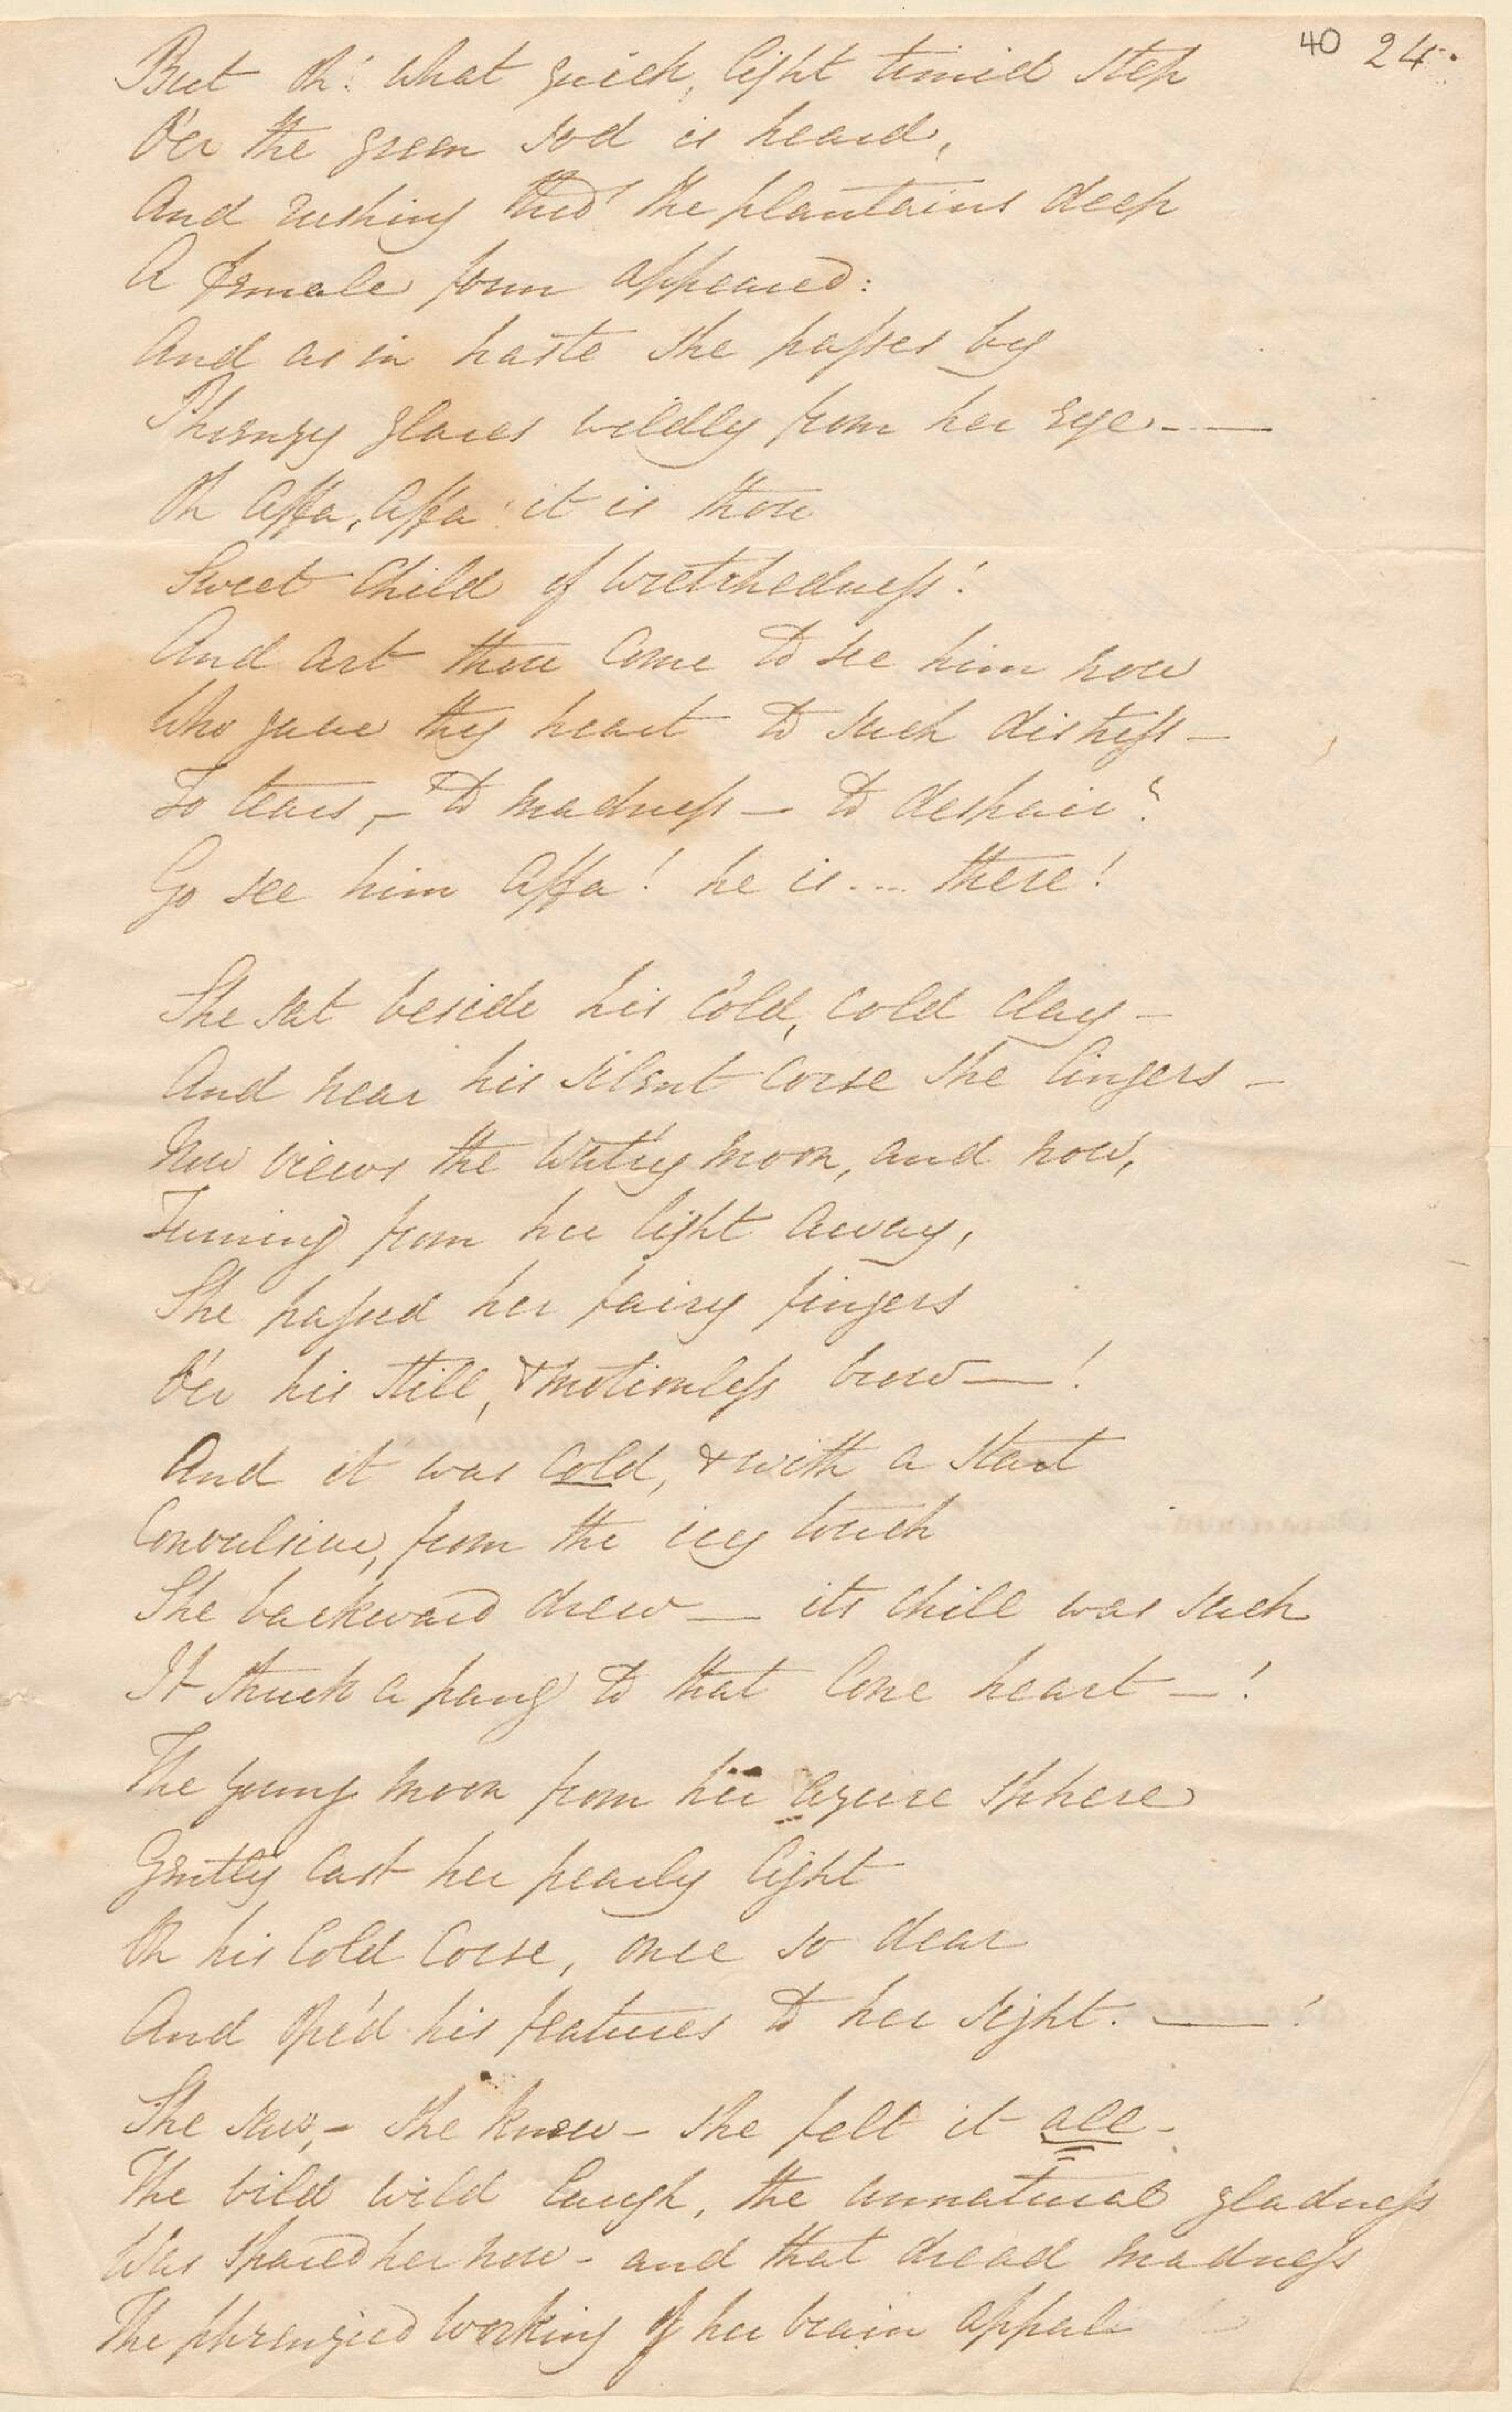 40 24.
But Oh! what quick, light timid step
O'er the green sod is heard,
And rushing thro' the plantains deep
A female form appeared:
And as in haste she passes by
Phrenzy glares wildly from her eye - —
Oh Affa, Affa! it is thou
Sweet Child of wretchedness!
And art thou come to see him now
Who gave thy heart to such distress —
To tears, — to madness — to despair?
Go see him Affa! he is .... there!
She sat beside his cold, cold clay —
And near his silent corse she lingers —
Now views the wat'ry moon, and now,
Turning from her light away,
She passed her fairy fingers
O'er his still, & motionless brow — !
And it was cold, & with a start
Convulsive, from the icy touch
She backward drew — its chill was such
It struck a pang to that lone heart — !
The young moon from her azure sphere
Gently cast her pearly light
On his cold corse, once so dear
And ope'd his features to her sight. — !
She saw, — she knew — she felt it all —
The wild wild laugh, the unnatural gladness
Was spared her now — and that dread madness
The phrenzied working of her brain appals